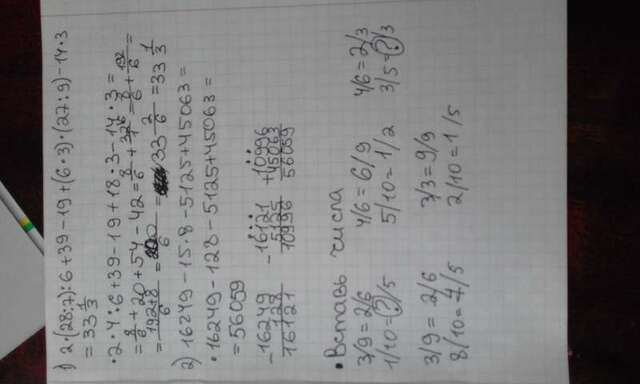 1) 2·(28:7):6+39-19+(6·3)·(27:9)-14·3
= 33 1/3
·2·4:6+39-19+18·3-14·3=
= 8/6+20+54-42= 8/6+ = 8/6+192/6=
= 192+8/6 = 200/6 = 33 2/6 = 33 1/3
2) 16249-15·8-5125+45063=
·16249-128-5125+45063=
=56059
-16249 -16121 +10996
128 5125 45063
16121 10996 56059
·Вставь числа
3/9=2/6 4/6=6/9 4/6=2/3
1/10=?/5 5/10=1/2 3/5=?/3
3/9= 2/6 3/3=9/9
8/10=7/5 2/10=1/5